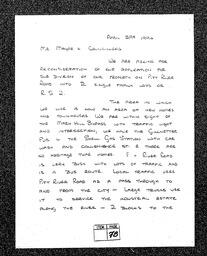 April 3rd
Mr. Mayor & Councillors
We are asking for
reconsideration of our application for
sub division of our property on Pitt River
Road into 2 single family lots or
R.S. 2.
The area in which
we live is now an area of new homes
and townhouses. We are within sight of
the Mary Hill Bypass with traffic light
and intersection, we have the Gillnetter
Pub & the Shell Gas Station with car
wash and convenience store & there are
no heritage type homes. Pitt River Road
is very busy with lots of traffic and
is a bus route. Local traffic uses
Pitt River Road as a pass through to
and from the city. Large trucks use
it to service the industrial estate
along the river - 2 blocks to the
ITEM PAGE
78